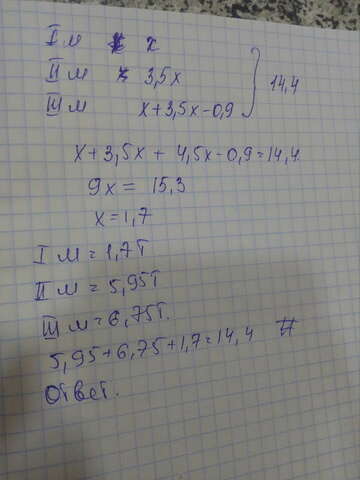 I м x
II м 3,5x
III м x+3,5x-0,9 } 14,4
x+3,5x+4,5x-0,9=14,4
9x = 15,3
x=1,7
I м = 1,7т
II м = 5,95т
III м = 6,75т.
5,95+6,75+1,7=14,4 #
Ответ.